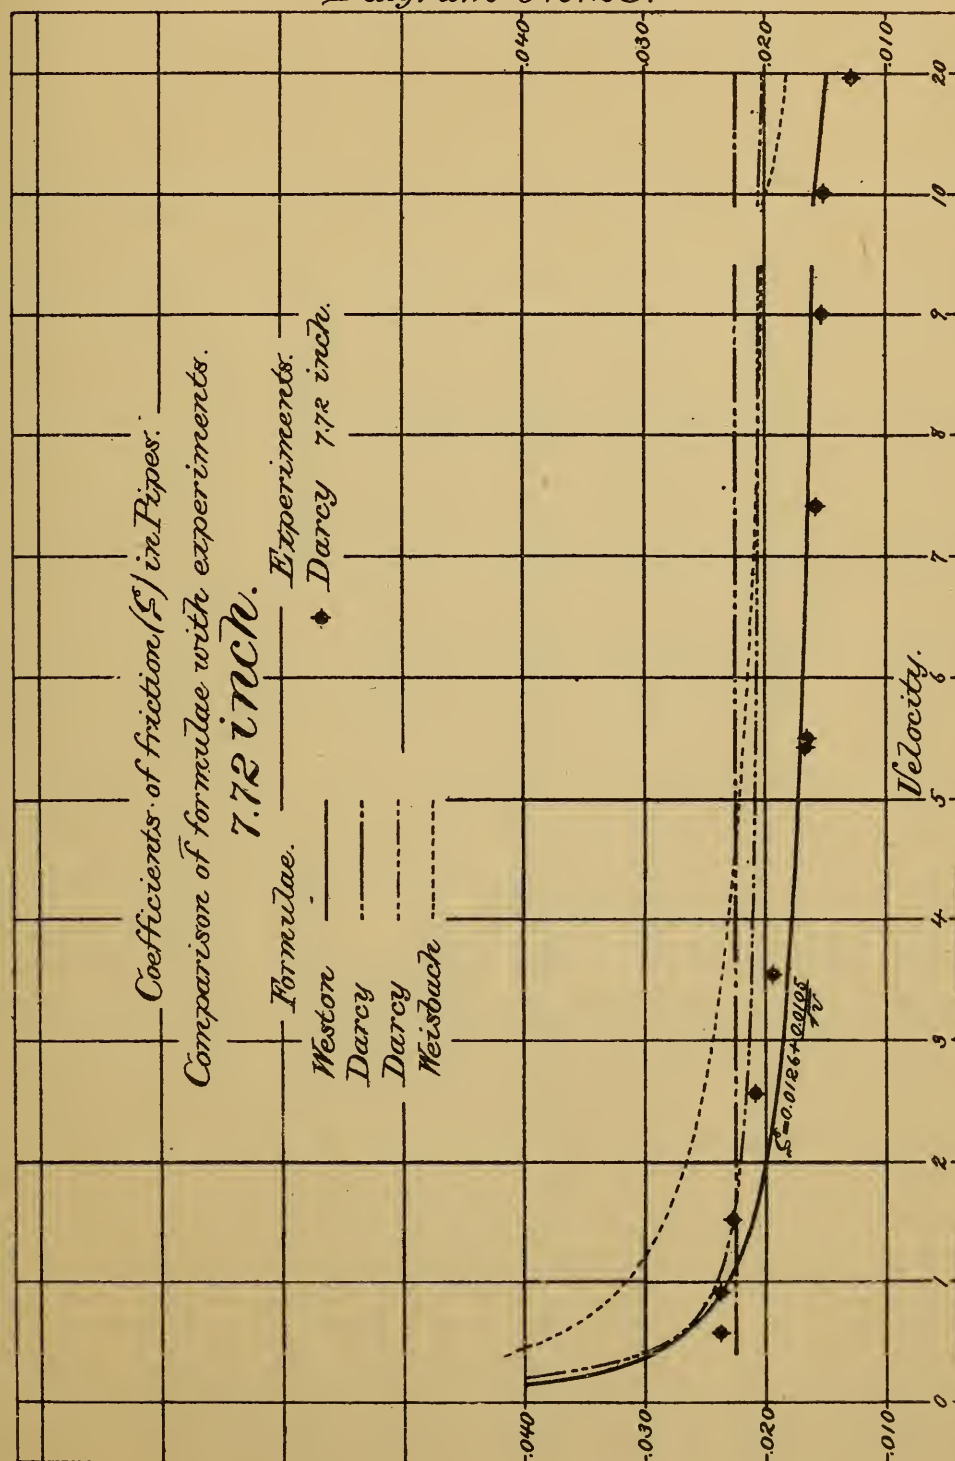 Coefficients of friction (ζ) in Pipes.
Comparison of formulae with experiments.
7.72 inch.
Formulae.
Weston
Darcy
Darcy
Weisbach
Experiments.
Darcy 7.72 inch.
.040
.030
.020
.010
.040
.030
.020
.010
ζ=0.0126+0.0105/√v
Velocity.
0 1 2 3 4 5 6 7 8 9 10 20